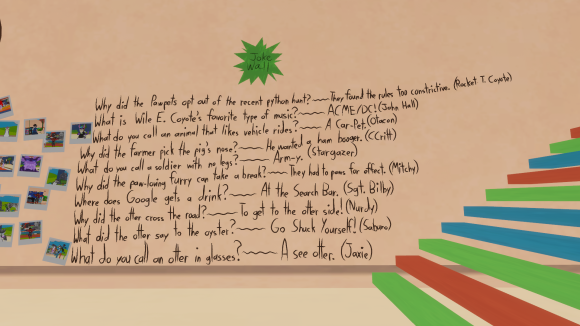 Joke Wall
Why did the Pawpets opt out of the recent python hunt? — They found the rules too constrictive. (Rocket T. Coyote)
What is Wile E. Coyote's favorite type of music? — ACME/DC! (John Hall)
What do you call an animal that likes vehicle rides? — A Car-Pet. (Otacon)
Why did the farmer pick the pig's nose? — He wanted a ham booger. (CCritt)
What do you call a soldier with no legs? — Arm-y. (Stargazer)
Why did the pun-loving furry can take a break? — They had to paws for effect. (Mitchy)
Where does Google gets a drink? — At the Search Bar. (Sgt. Bilby)
Why did the otter cross the road? — To get to the otter side! (Nurdy)
What did the otter say to the oyster? — Go Shuck Yourself! (Sabero)
What do you call an otter in glasses? — A see otter. (Jaxie)